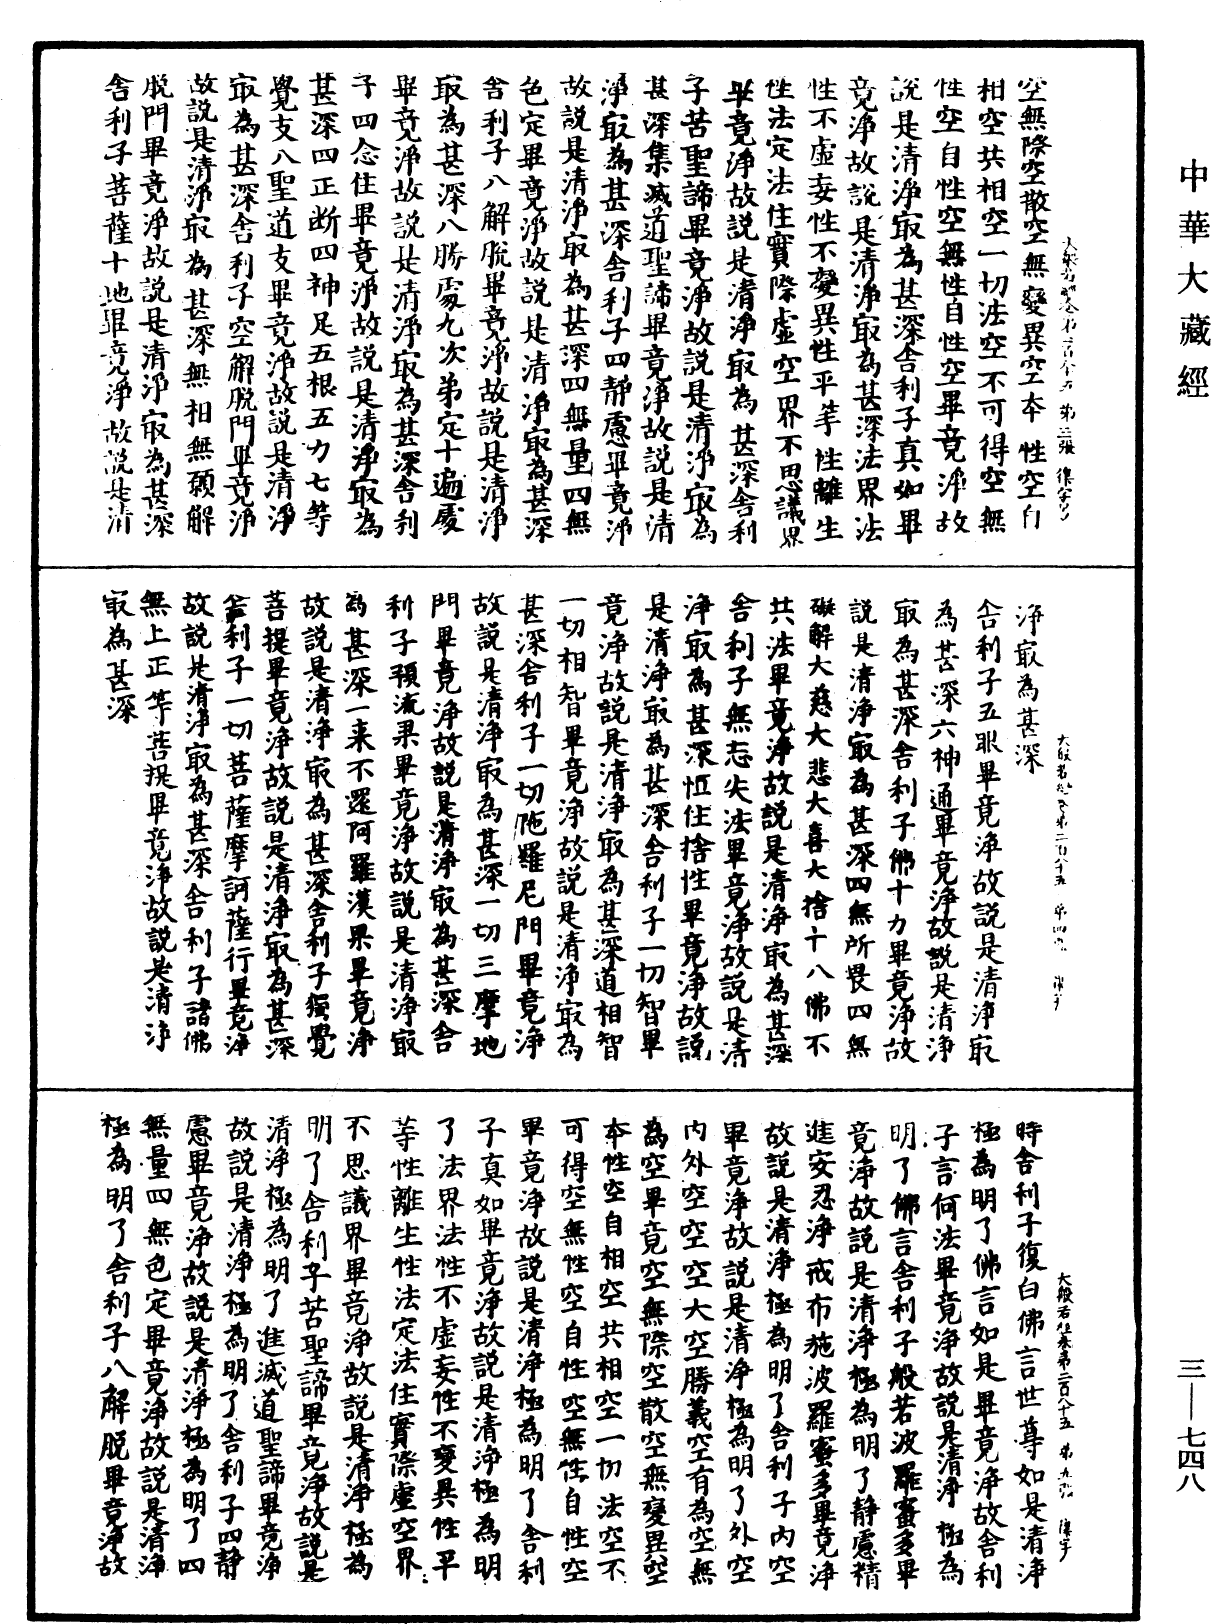 中華大藏經
空無際空散空無變異空本性空自
相空共相空一切法空不可得空無
性空自性空無性自性空畢竟淨故
說是清淨㝡為甚深舍利子真如畢
竟淨故說是清淨㝡為甚深法界法
性不虛妄性不變異性平等性離生
性法定法住實際虛空界不思議界
畢竟淨故說是清淨㝡為甚深舍利
子苦聖諦畢竟淨故說是清淨㝡為
甚深集滅道聖諦畢竟淨故說是清
淨㝡為甚深舍利子四靜慮畢竟淨
故說是清淨㝡為甚深四無量四無
色定畢竟淨故說是清淨㝡為甚深
舍利子八解脫畢竟淨故說是清淨
㝡為甚深八勝處九次弟定十遍處
畢竟淨故說是清淨㝡為甚深舍利
子四念住畢竟淨故說是清淨㝡為
甚深四正断四神足五根五力七等
覺支八聖道支畢竟淨故說是清淨
㝡為甚深舍利子空解脫門畢竟淨
故說是清淨㝡為甚深無相無願解
脫門畢竟淨故說是清淨㝡為甚深
舍利子菩薩十地畢竟淨故說是清
大般若經卷第二百八十五 第四張
淨㝡為甚深
舍利子五眼畢竟淨故說是清淨㝡
為甚深六神通畢竟淨故說是清淨
㝡為甚深舍利子佛十力畢竟淨故
說是清淨㝡為甚深四無所畏四無
礙解大慈大悲大喜大捨十八佛不
共法畢竟淨故說是清淨㝡為甚深
舍利子無忘失法畢竟淨故說是清
淨㝡為甚深恒住捨性畢竟淨故說
是清淨㝡為甚深舍利子一切智畢
竟淨故說是清淨㝡為甚深道相智
一切相智畢竟淨故說是清淨㝡為
甚深舍利子一切陁羅尼門畢竟淨
故說是清淨㝡為甚深一切三摩地
門畢竟淨故說是清淨㝡為甚深舍
利子預流果畢竟淨故說是清淨㝡
為甚深一来不還阿羅漢果畢竟淨
故說是清淨㝡為甚深舍利子獨覺
菩提畢竟淨故說是清淨㝡為甚深
舍利子一切菩薩摩訶薩行畢竟淨
故說是清淨㝡為甚深舍利子諸佛
無上正等菩提畢竟淨故說是清淨
㝡為甚深
大般若經卷第二百八十五 第五張
時舍利子復白佛言世尊如是清淨
極為明了佛言如是畢竟淨故舍利
子言何法畢竟淨故說是清淨極為
明了佛言舍利子般若波羅蜜多畢
竟淨故說是清淨極為明了靜慮精
進安忍淨戒布施波羅蜜多畢竟淨
故說是清淨極為明了舍利子內空
畢竟淨故說是清淨極為明了外空
內外空空空大空勝義空有為空無
為空畢竟空無際空散空無變異空
本性空自相空共相空一切法空不
可得空無性空自性空無性自性空
畢竟淨故說是清淨極為明了舍利
子真如畢竟淨故說是清淨極為明
了法界法性不虛妄性不變異性平
等性離生性法定法住實際虛空界
不思議界畢竟淨故說是清淨極為
明了舍利子苦聖諦畢竟淨故說是
清淨極為明了進滅道聖諦畢竟淨
故說是清淨極為明了舍利子四靜
慮畢竟淨故說是清淨極為明了四
無量四無色定畢竟淨故說是清淨
極為明了舍利子八解脫畢竟淨故
三—七四八